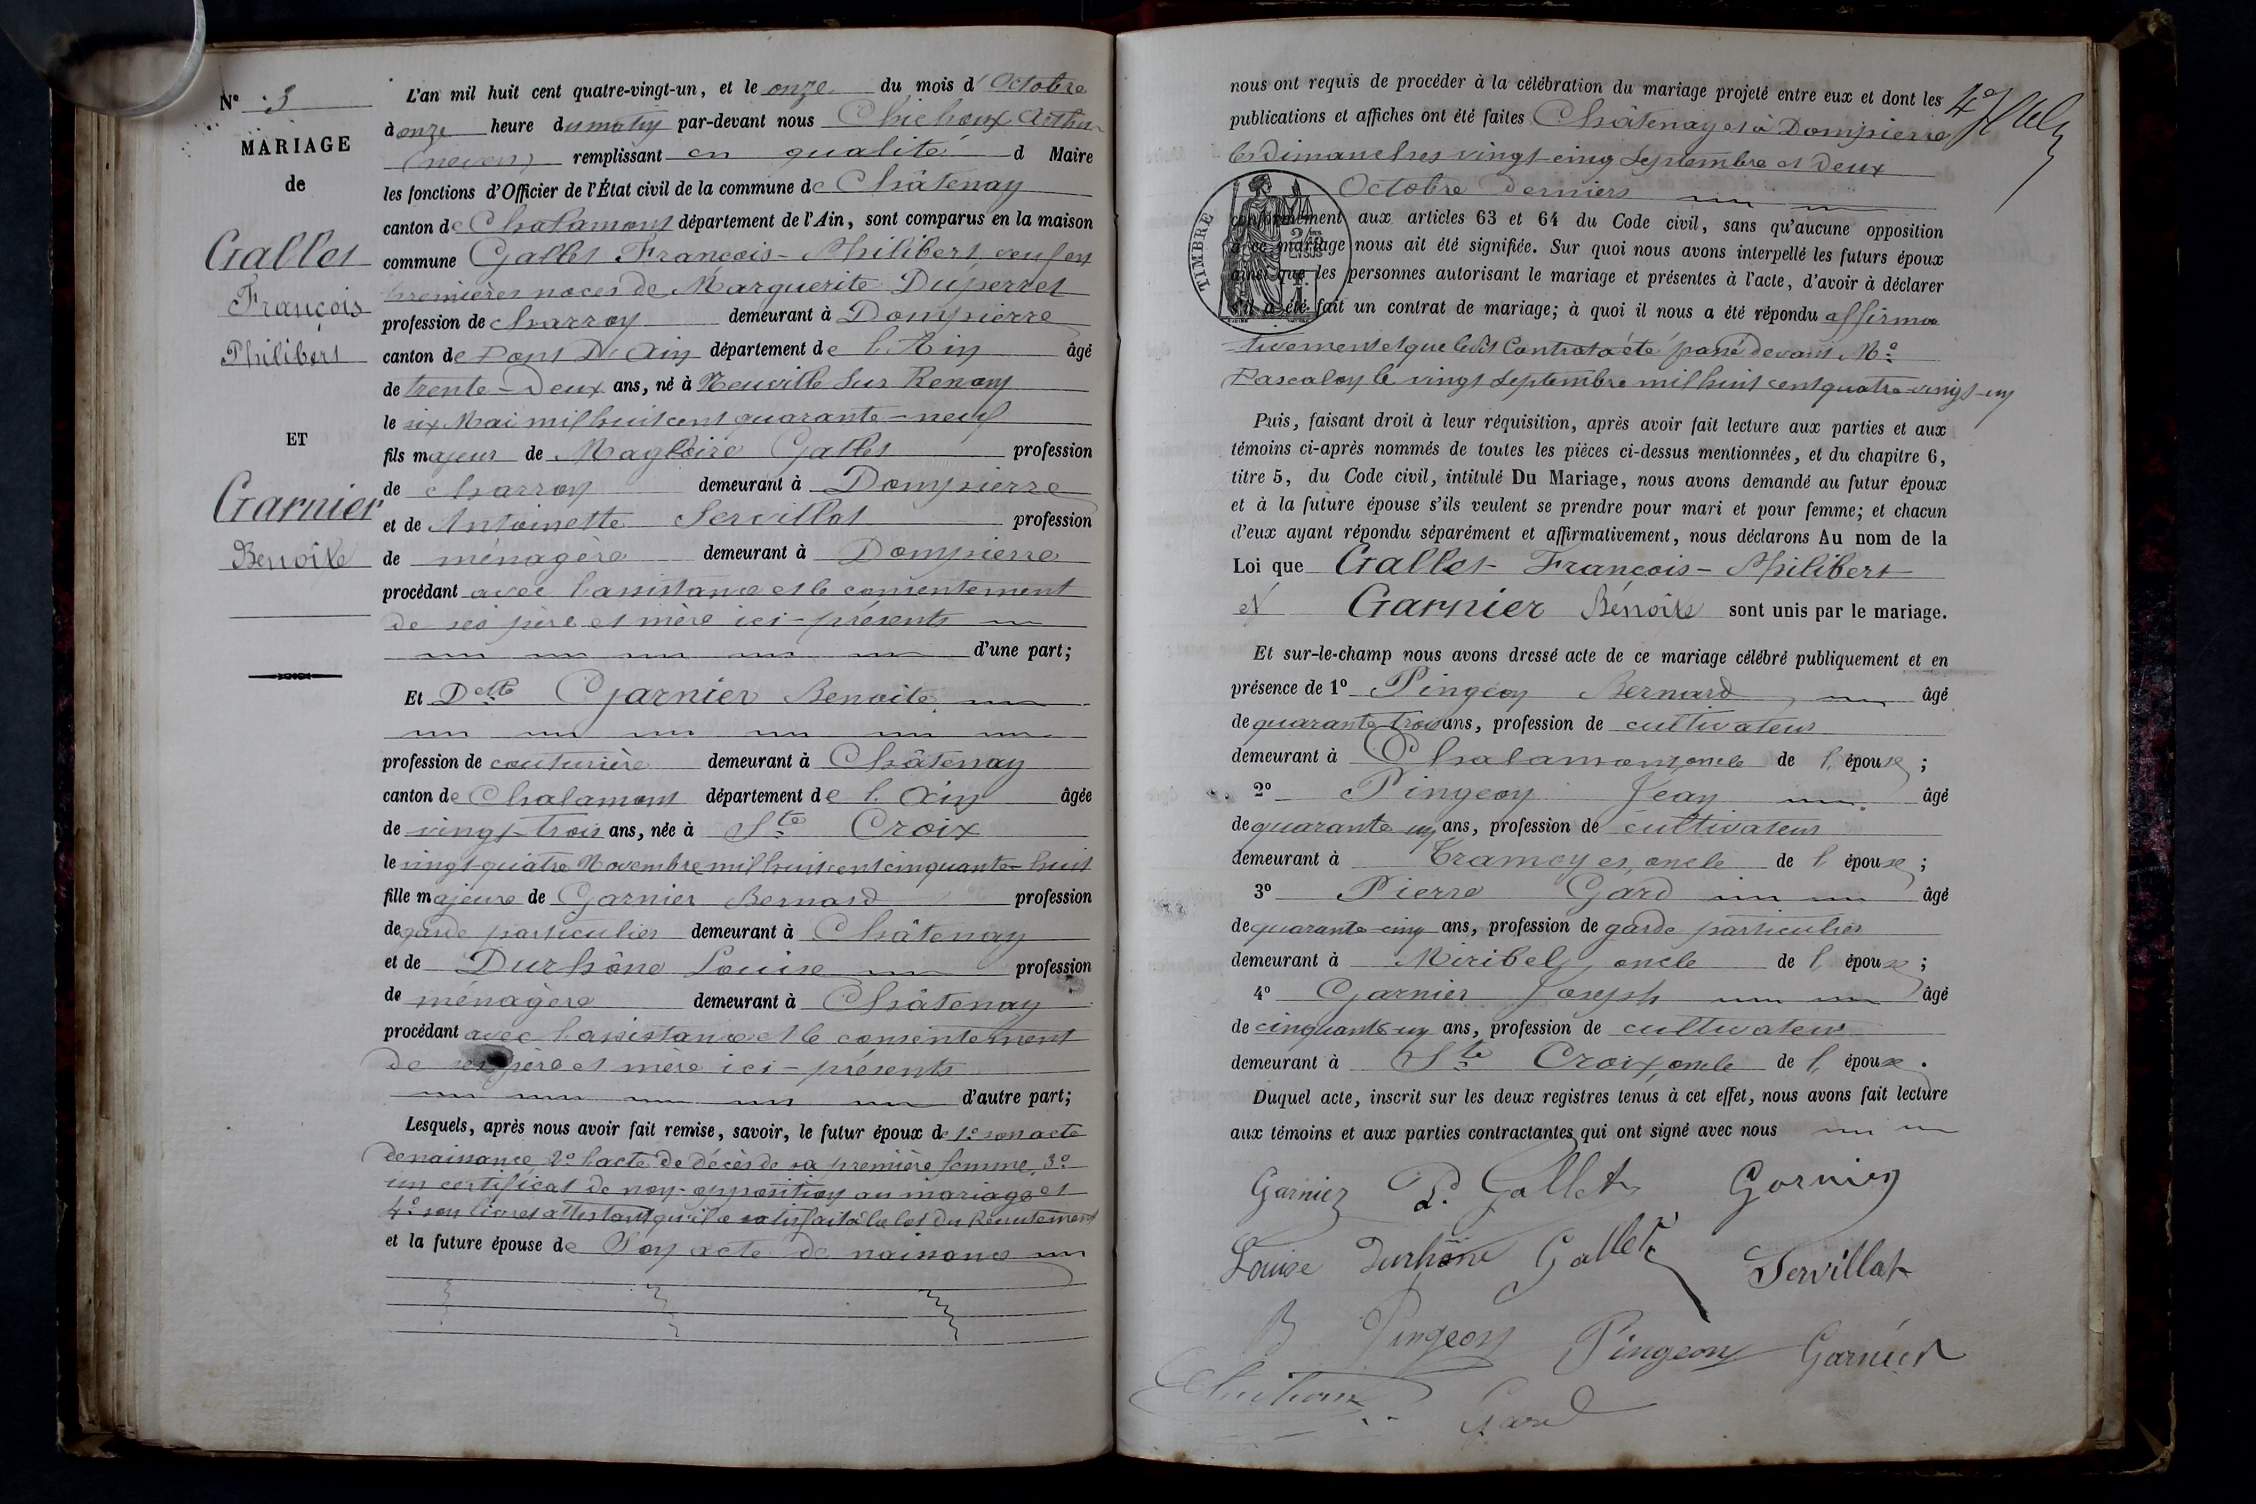 N° 3
MARIAGE
de
Gallet
François
Philibert
ET
Garnier
Benoite
L'an mil huit cent quatre-vingt-un, et le onze du mois d'Octobre
à onze heure du matin par-devant nous Chichoux Arthur
(neveu) remplissant en qualité d Maire
les fonctions d'Officier de l'État civil de la commune de Châtenay
canton de Chalamont département de l'Ain, sont comparus en la maison
commune Gallet François-Philibert veuf en
premières noces de Marguerite Duperret
profession de charron demeurant à Dompierre
canton de Pont D'Ain département de l'Ain âgé
de trente-Deux ans, né à Neuville Sur Renom
le six Mai mil huit cent quarante-neuf
fils majeur de Magloire Gallet profession
de charron demeurant à Dompierre
et de Antoinette Servillat profession
de ménagère demeurant à Dompierre
procédant avec l'assistance et le consentement
de ses père et mère ici-présents
d'une part;
Et Delle Garnier Benoite
profession de couturière demeurant à Châtenay
canton de Chalamont département de l'Ain âgée
de vingt-trois ans, née à Ste Croix
le vingt-quatre Novembre mil huit cent cinquante-huit
fille majeure de Garnier Bernard profession
de garde particulier demeurant à Châtenay
et de Durhône Louise profession
de ménagère demeurant à Châtenay
procédant avec l'assistance et le consentement
de ses père et mère ici-présents
d'autre part;
Lesquels, après nous avoir fait remise, savoir, le futur époux de 1° son acte
de naissance 2° l'acte de décès de sa première femme, 3°
un certificat de non-opposition au mariage et
4° son livret attestant qu'il a satisfait à la loi du Recrutement
et la future épouse de Son acte de naissance
nous ont requis de procéder à la célébration du mariage projeté entre eux et dont les
publications et affiches ont été faites Châtenay et à Dompierre
les dimanches vingt-cinq Septembre et Deux
Octobre Derniers
TIMBRE
conformément aux articles 63 et 64 du Code civil, sans qu'aucune opposition
à ce mariage nous ait été signifiée. Sur quoi nous avons interpellé les futurs époux
ainsi que les personnes autorisant le mariage et présentes à l'acte, d'avoir à déclarer
s'il a été fait un contrat de mariage; à quoi il nous a été répondu affirma
tivement et que ledit Contrat a été passé devant Me
Pascalon le vingt Septembre mil huit cent quatre-vingt-un
Puis, faisant droit à leur réquisition, après avoir fait lecture aux parties et aux
témoins ci-après nommés de toutes les pièces ci-dessus mentionnées, et du chapitre 6,
titre 5, du Code civil, intitulé Du Mariage, nous avons demandé au futur époux
et à la future épouse s'ils veulent se prendre pour mari et pour femme; et chacun
d'eux ayant répondu séparément et affirmativement, nous déclarons Au nom de la
Loi que Gallet François-Philibert
et Garnier Bénoite sont unis par le mariage.
Et sur-le-champ nous avons dressé acte de ce mariage célébré publiquement et en
présence de 1° Pingeon Bernard, âgé
de quarante trois ans, profession de cultivateur
demeurant à Chalamont, oncle de l'épouse;
2° Pingeon Jean âgé
de quarante un ans, profession de cultivateur
demeurant à Tramoyes, oncle de l'épouse;
3° Pierre Gard âgé
de quarante-cinq ans, profession de garde particulier
demeurant à Miribel, oncle de l'épouse;
4° Garnier Joseph âgé
de cinquante-un ans, profession de cultivateur
demeurant à Ste Croix, oncle de l'épouse.
Duquel acte, inscrit sur les deux registres tenus à cet effet, nous avons fait lecture
aux témoins et aux parties contractantes qui ont signé avec nous
Garnier P. Gallet Garnier
Louise Durhône Gallet Servillat
B Pingeon Pingeon Garnier
Chichoux Gard